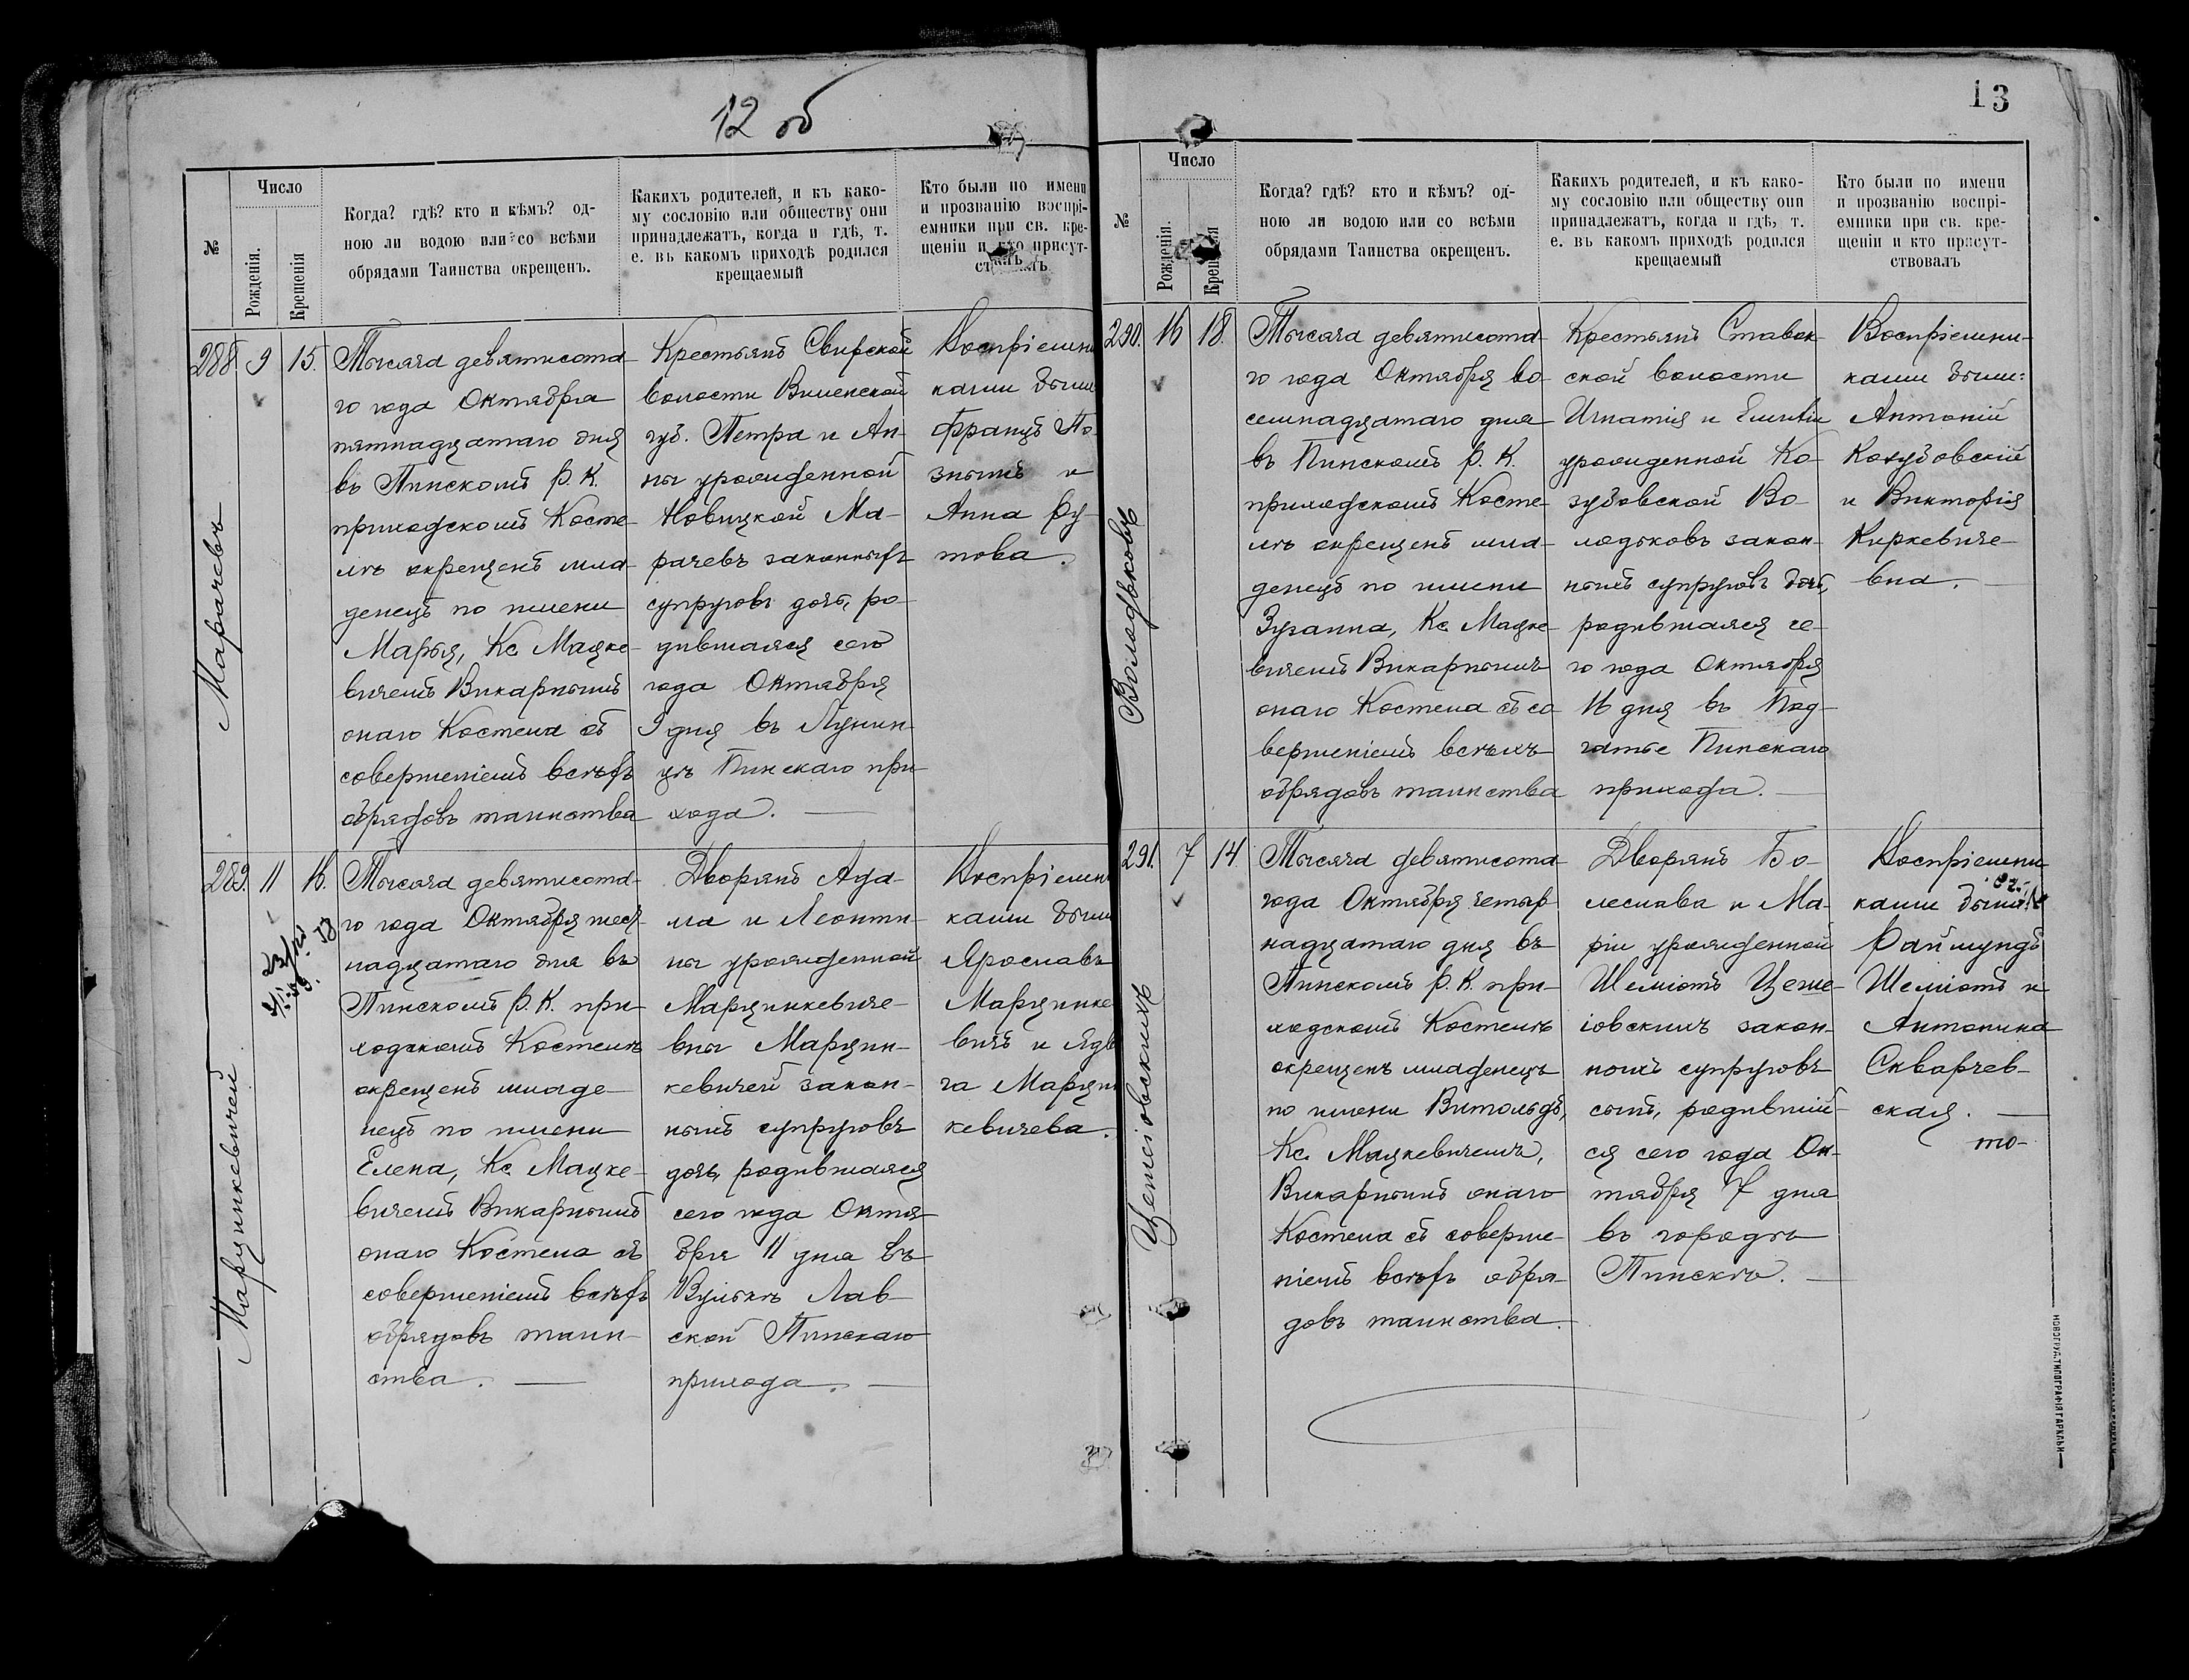 12 об
№
Число
Рожденія.
Крещенія
Когда? гдѣ? кто и кѣмъ? од-
ною ли водою или со всѣми
обрядами Таинства окрещенъ.
Какихъ родителей, и къ како-
му сословію или обществу они
принадлежатъ, когда и гдѣ, т.
е. въ какомъ приходѣ родился
крещаемый
Кто были по имени
и прозванію воспрі-
емники при св. кре-
щеніи и кто присут-
288.
9
15.
Марачевъ
Тысяча девятисота-
го года Октября
пятнадцатаго дня
въ Пинскомъ Р. К.
приходскомъ Косте-
лѣ окрещенъ мла-
денецъ по имени
Марья, Кс. Мацке-
вичемъ Викарнымъ
онаго Костела съ
совершеніемъ всѣхъ
обрядовъ таинства
Крестьянъ Свирской
волости Виленской
губ. Петра и Ан-
ны урожденной
Новицкой Ма-
рачевъ законныхъ
супруговъ дочь, ро-
дившаяся сего
года Октября
9 дня въ Лунин-
цѣ Пинскаго при-
хода.
Воспріемни
ками были
Францъ По-
знякъ и
Анна Ру-
това.
289.
11
16.
Марцинкевичей
Тысяча девятисота-
го года Октября шест-
надцатаго дня въ
Пинскомъ Р. К. при-
ходскомъ Костелѣ
окрещенъ младе-
нецъ по имени
Елена, Кс. Мацке-
вичемъ Викарнымъ
онаго Костела съ
совершеніемъ всѣхъ
обрядовъ таин-
ства.
Дворянъ Ада-
ма и Леонти-
ны урожденной
Марцинкевиче-
вны Марцин-
кевичей закон-
ныхъ супруговъ
дочь, родившаяся
сего года Октя-
бря 11 дня въ
Вулькѣ Лав-
ской Пинскаго
прихода.
Воспріемни
ками были
Ярославъ
Марцинке
вичъ и Ядви
га Марцин
кевичева.
13
№
Число
Рожденія.
Крещенія
Когда? гдѣ? кто и кѣмъ? од-
ною ли водою или со всѣми
обрядами Таинства окрещенъ.
Какихъ родителей, и къ како-
му сословію или обществу они
принадлежатъ, когда и гдѣ, т.
е. въ какомъ приходѣ родился
крещаемый
Кто были по имени
и прозванію воспрі-
емники при св. кре-
щеніи и кто присут-
ствовалъ
290.
16
18.
Володьковъ
Тысяча девятисота-
го года Октября во-
семнадцатаго дня
въ Пинскомъ Р. К.
приходскомъ Косте-
лѣ окрещенъ мла-
денецъ по имени
Зузанна, Кс. Мацке-
вичемъ Викарнымъ
онаго Костела съ со-
вершеніемъ всѣхъ
обрядовъ таинства
Крестьянъ Ставок-
ской волости
Игнатія и Емиліи
урожденной Ко-
зубовской Во-
лодьковъ закон-
ныхъ супруговъ дочь,
родившаяся се-
го года Октября
16 дня въ Под-
гатье Пинскаго
прихода.
Воспріемни-
ками были:
Антоній
Козубовскій
и Викторія
Киркевиче-
вна.
291.
7
14.
Цешіовскихъ
Тысяча девятисота
года Октября четыр-
надцатаго дня въ
Пинскомъ Р. К. при-
ходскомъ Костелѣ
окрещенъ младенецъ
по имени Витольдъ,
Кс. Мацкевичемъ,
Викарнымъ онаго
Костела съ соверше-
ніемъ всѣхъ обря-
довъ таинства.
Дворянъ Бо-
леслава и Ма-
ріи урожденной
Шеліотъ Цеше-
іовскихъ закон-
ныхъ супруговъ
сынъ, родивший-
ся сего года Ок-
тября 7 дня
въ городѣ
Пинскѣ.
Воспріемни
ками были:
Раймундъ
Шеліотъ и
Антонина
Скварчев-
ская.